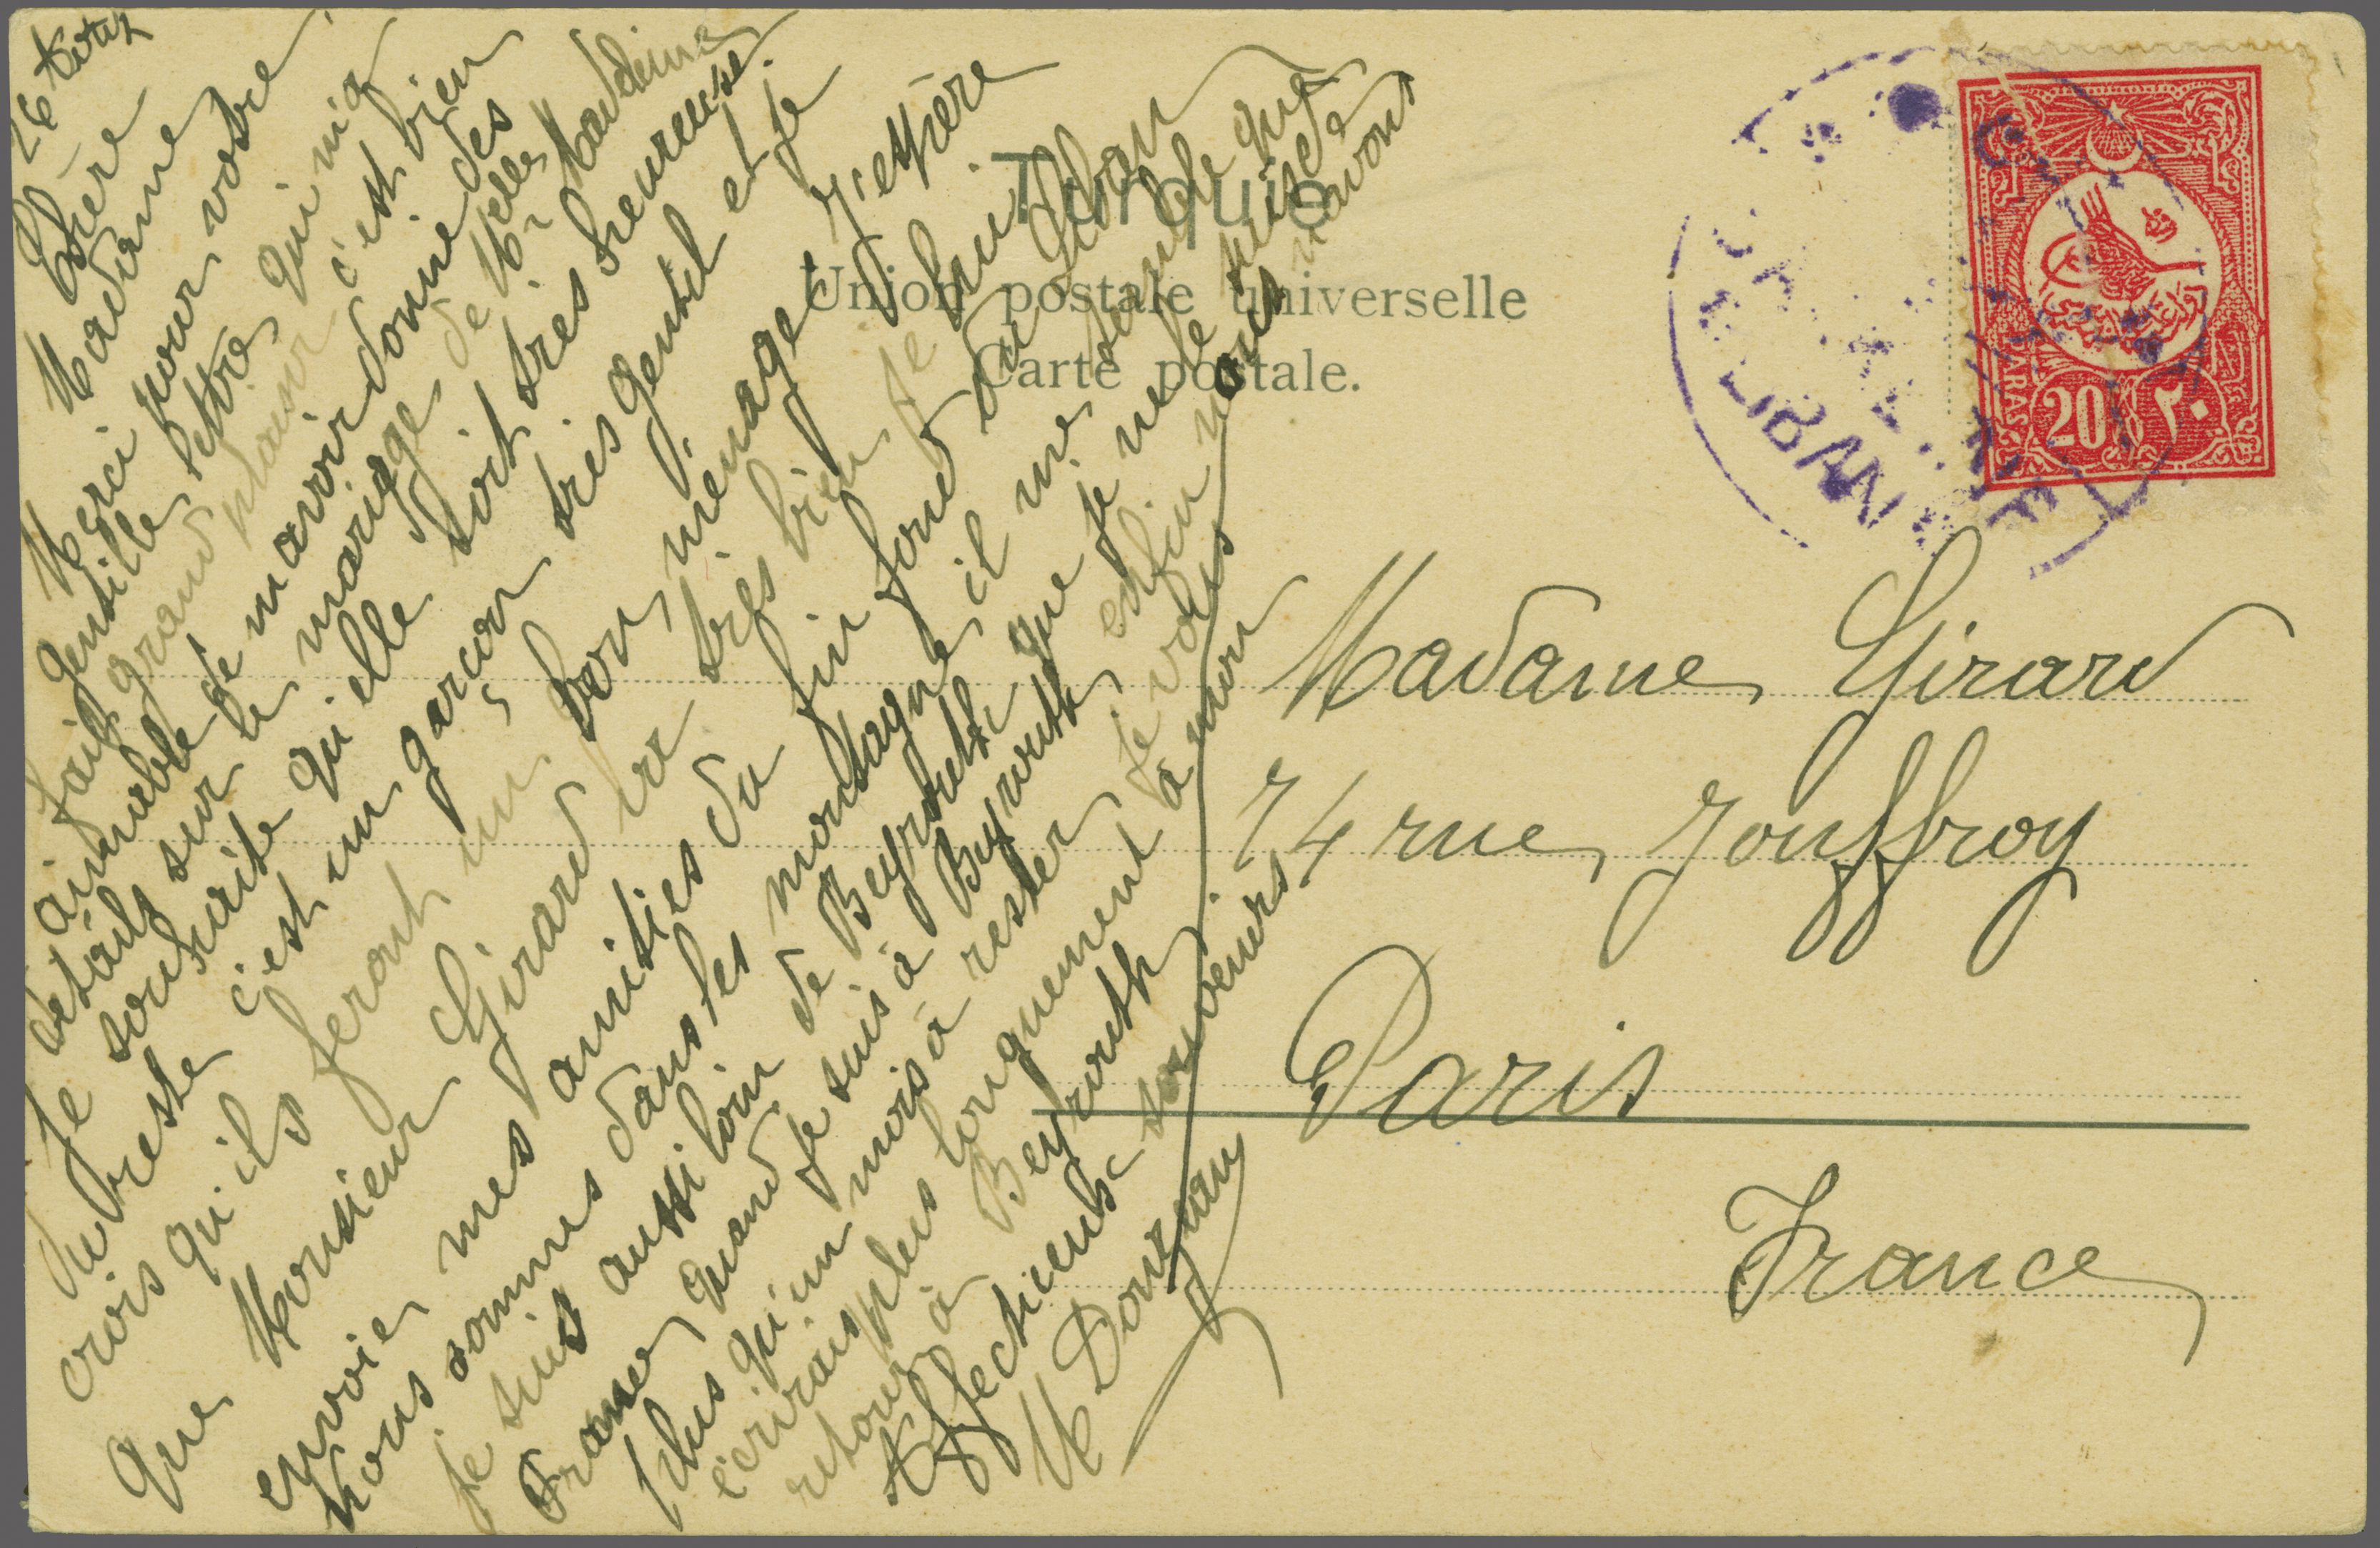 26 Août
Chère
Madame
Merci pour votre
gentille lettre qui m'a
fait grand plaisir c'est bien
aimable de m'avoir donné des
détails sur le mariage de Melle
Je souhaite qu'elle soit très heureuse.
du reste c'est un garçon très gentil et je
crois qu'ils feront un bon ménage. J'espère
que Monsieur Girard va très bien je lui
envoie mes amitiés du fin fond du Liban
Nous sommes dans les montagnes il me semble que
je suis aussi loin de Beyrouth que je ne le suis de
France quand je suis à Beyrouth enfin nous n'avons
plus qu'un mois à rester je vous
écrirais plus longuement à mon
retour à Beyrouth
Affectueux souvenirs
M Dourgnan
Turquie
Union postale universelle
Carte postale.
LIBAN
PARAS
20 ٢٠
Madame Girard
74 rue Jouffroy
Paris
France